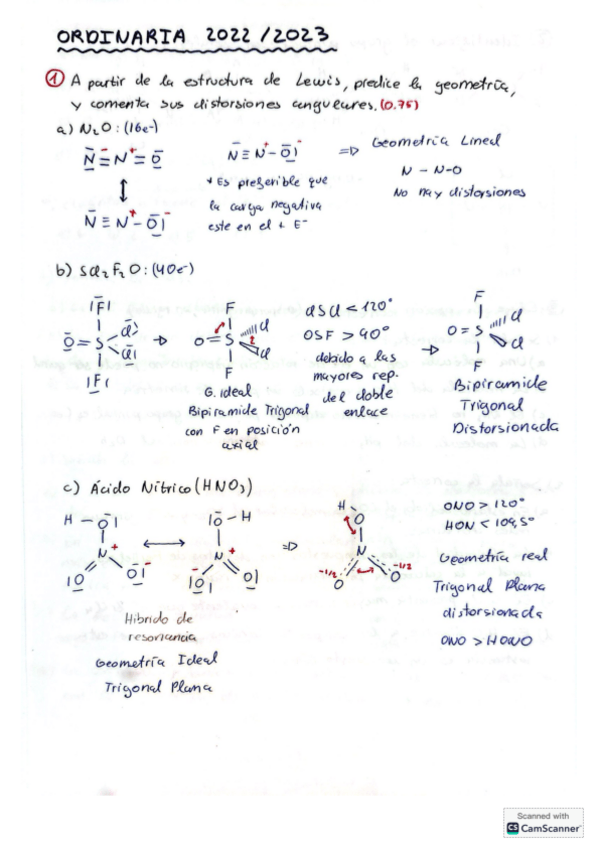 ORDINARIA 2022/2023
① A partir de la estructura de Lewis, predice la geometría,
y comenta sus distorsiones angulares. (0.75)
a) N₂O : (16e-)
N = N⁺ = O
N ≡ N⁺ - O⁻ ⇒ Geometría Lineal
N - N-O
No hay distorsiones
+ Es preferible que
la carga negativa
este en el + E⁻
N ≡ N⁺ - O⁻
b) SCl₂F₂O : (40e-)
F
O = S
Cl
Cl
F
F
O = S
Cl
Cl
F
G. ideal
Bipiramide Trigonal
con F en posición
axial
ClSCl < 120°
OSF > 90°
debido a las
mayores rep.
del doble
enlace
F
O = S
Cl
Cl
F
Bipiramide
Trigonal
Distorsionada
c) Ácido Nítrico (HNO₃)
H - O
N⁺
O
O⁻
O - H
N⁺
O⁻
O
⇒
H
O
N
-1/2
O
-1/2
O
Híbrido de
resonancia
Geometría Ideal
Trigonal Plana
ONO > 120°
HON < 109,5°
Geometría real
Trigonal Plana
distorsionada
ONO > HONO
Scanned with
CS CamScanner